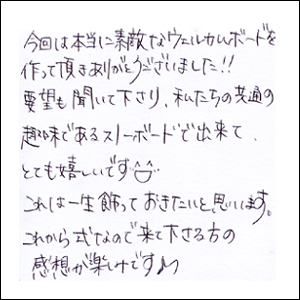 今回は本当に素敵なウェルカムボードを
作って頂きありがとうございました!!
要望も聞いて下さり、私たちの共通の
趣味であるスノーボードで出来て、
とても嬉しいです
これは一生飾っておきたいと思います。
これから式なので来て下さる方の
感想が楽しみです♪